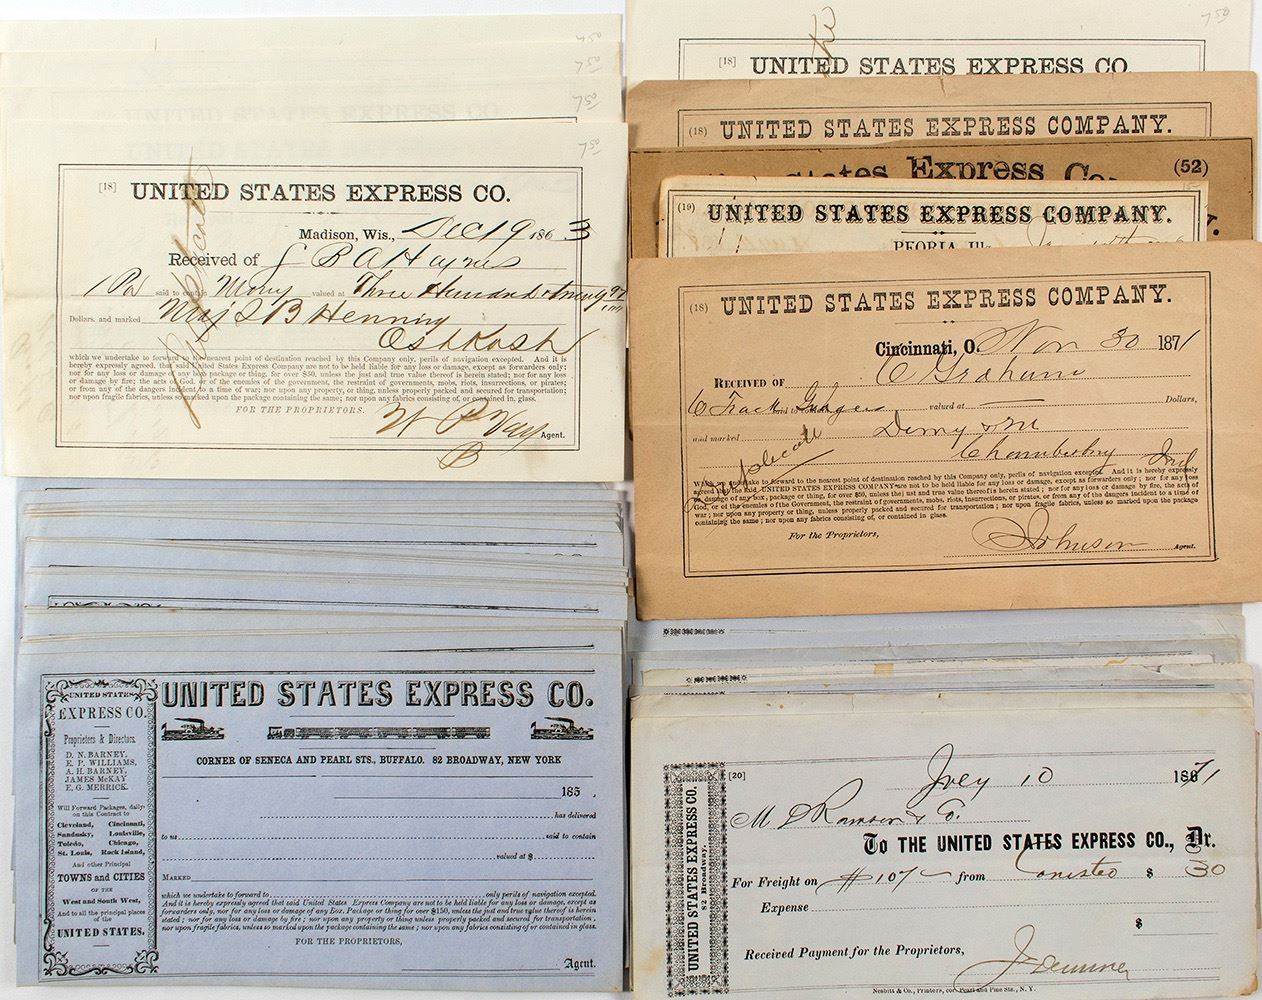 7.50
7.50
7.50
7.50
[18] UNITED STATES EXPRESS CO.
Madison, Wis., Dec 19 1863
Received of
said to contain Mony valued at Three Hundred
Dollars. and marked Maj S B Henning
Oshkosh
which we undertake to forward to the nearest point of destination reached by this Company only, perils of navigation excepted. And it is
hereby expressly agreed, that the United States Express Company are not to be held liable for any loss or damage, except as forwarders only;
nor for any loss or damage of any box package or thing, for over $50, unless the just and true value thereof is herein stated; nor for any loss
or damage by fire; the acts of God, or of the enemies of the government, the restraint of governments, mobs, riots, insurrections, or pirates;
or from any of the dangers incident to a time of war; nor upon any property or thing, unless properly packed and secured for transportation;
nor upon fragile fabrics, unless so marked upon the package containing the same; nor upon any fabrics, consisting of, or contained in, glass.
FOR THE PROPRIETORS.
Agent.
7.50
[18] UNITED STATES EXPRESS CO.
(18) UNITED STATES EXPRESS COMPANY.
States Express Co. (52)
(19) UNITED STATES EXPRESS COMPANY.
PEORIA, Ill.
(18) UNITED STATES EXPRESS COMPANY.
Cincinnati, O. Nov 30 1871
RECEIVED OF C Graham
said to contain valued at Dollars,
and marked
Duplicate
Ind
which we undertake to forward to the nearest point of destination reached by this Company only, perils of navigation excepted. And it is hereby expressly
agreed that the said UNITED STATES EXPRESS COMPANY are not to be held liable for any loss or damage, except as forwarders only; nor for any loss
or damage of any box, package or thing, for over $50, unless the just and true value thereof is herein stated; nor for any loss or damage by fire, the acts of
God, or of the enemies of the Government, the restraint of governments, mobs, riots, insurrections, or pirates, or from any of the dangers incident to a time of
war; nor upon any property or thing, unless properly packed and secured for transportation; nor upon fragile fabrics, unless so marked upon the package
containing the same; nor upon any fabrics consisting of, or contained in glass.
For the Proprietors,
Johnson Agent.
UNITED STATES
EXPRESS CO.
Proprietors & Directors.
D. N. BARNEY,
E. P. WILLIAMS,
A. H. BARNEY,
JAMES McKAY
E. G. MERRICK.
Will Forward Packages, daily
on this Contract to
Cleveland, Cincinnati,
Sandusky, Louisville,
Toledo, Chicago,
St. Louis, Rock Island,
And other Principal
TOWNS and CITIES
OF THE
West and South West,
And to all the principal places
of the
UNITED STATES.
UNITED STATES EXPRESS CO.
CORNER OF SENECA AND PEARL STS., BUFFALO. 82 BROADWAY, NEW YORK
185 .
has delivered
to us said to contain
valued at $
MARKED
which we undertake to forward to only perils of navigation excepted.
And it is hereby expressly agreed that said United States Express Company are not to be held liable for any loss or damage, except as
forwarders only, nor for any loss or damage of any Box, Package or thing for over $150, unless the just and true value thereof is herein
stated; nor for any loss or damage by fire; nor upon any property or thing unless properly packed and secured for transportation,
nor upon fragile fabrics, unless so marked upon the package containing the same, nor upon any fabrics consisting of or contained in glass.
FOR THE PROPRIETORS,
Agent.
UNITED STATES EXPRESS CO.
82 Broadway.
[20]
July 10 1871
M Ramson & Co.
To THE UNITED STATES EXPRESS CO., Dr.
For Freight on # 107 from Canisteo $ 30
Expense
$
Received Payment for the Proprietors,
Nesbitt & Co., Printers, cor. Pearl and Pine Sts., N. Y.